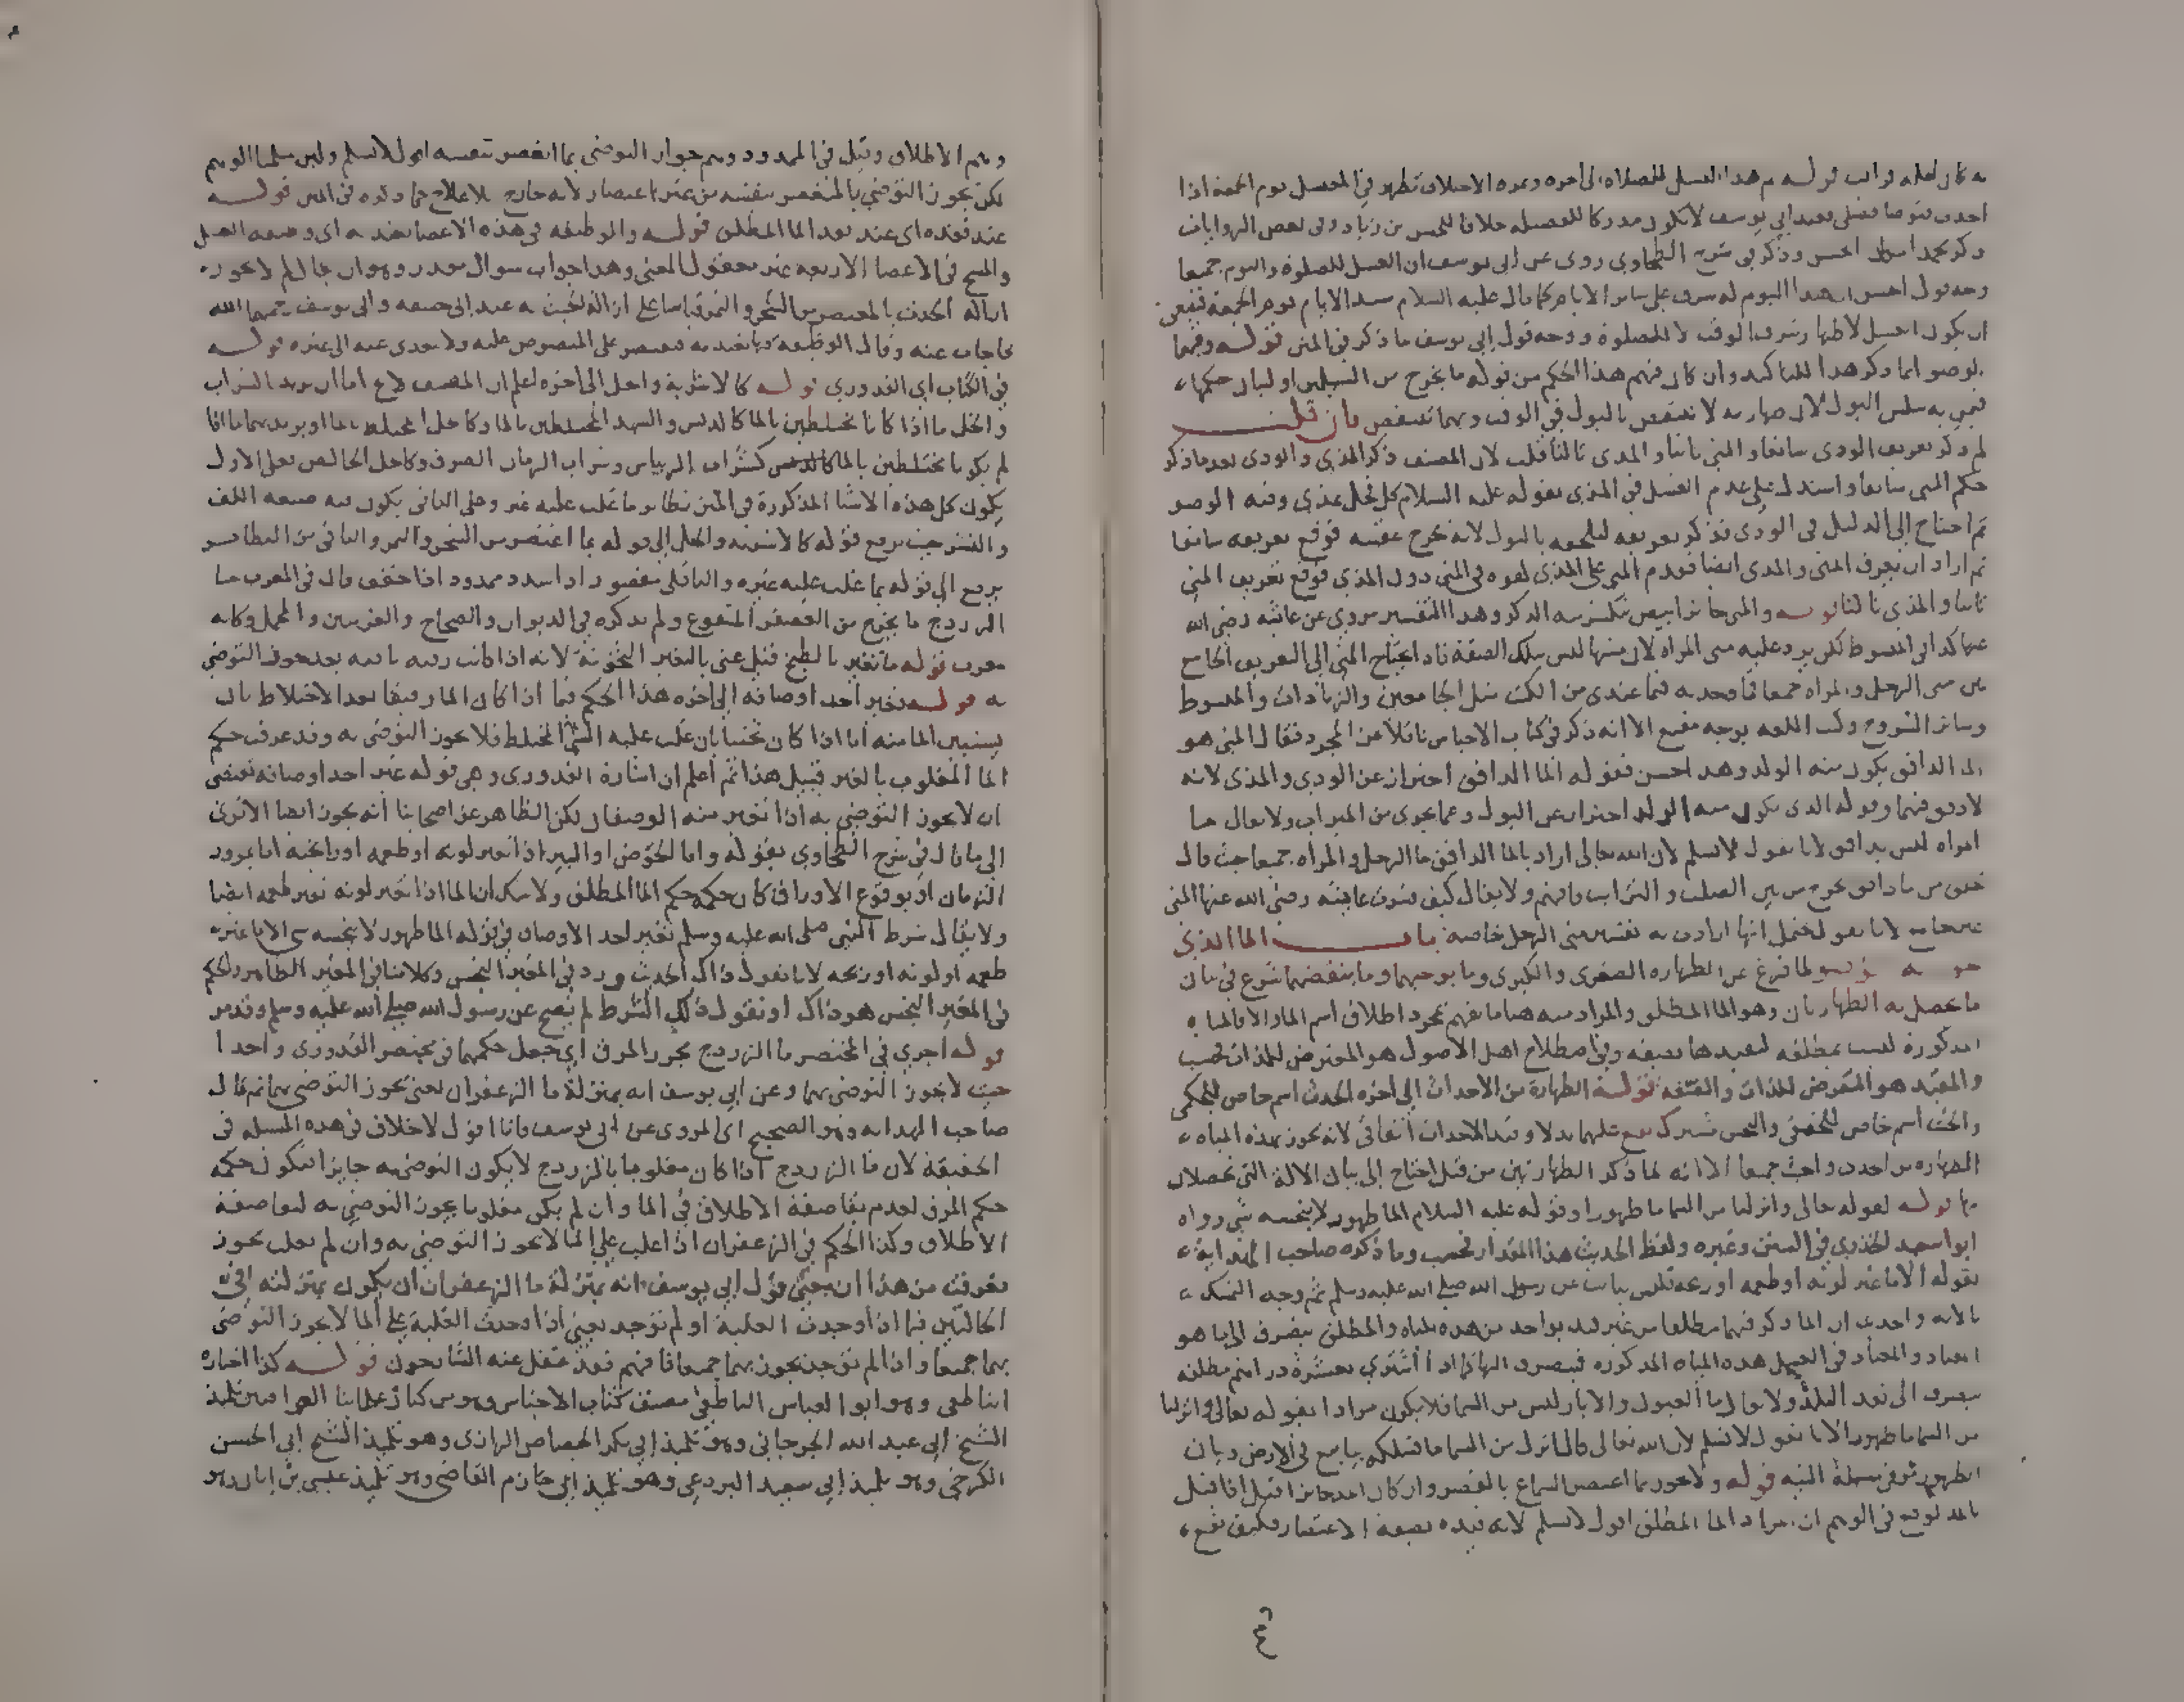 قوله ثم هذا الغسل للصلاة الى اخره وثمرة الاختلاف تظهر في المغتسل يوم الجمعة اذا
احدث فتوضا فصلى فعند ابي يوسف لا يكون مدركا للفضيلة خلافا للحسن بن زياد وفي بعض الروايات
ذكر محمد الحسن وذكر في شرح الطحاوي روى عن ابي يوسف ان الغسل للصلوة واليوم جميعا
وجه قول الحسن ان هذا اليوم له شرف على سائر الايام كما قال عليه السلام سيد الايام يوم الجمعة
ان يكون الغسل لاظهار شرف الوقت لا للصلوة ووجه قول ابي يوسف ما ذكر في المتن قوله وفيهما
الوضو انما ذكر هذا للتاكيد وان كان فهم هذا الحكم من قوله ما يخرج من السبيلين او لبيان حكمها
به سلس البول لان طهارته لا تنتقض بالبول في الوقت وبهما تنتقض فان قلت
لم ذكر تعريف الودي سابقا والمني ثانيا والمذي ثالثا قلت لان المصنف ذكر المذي والودي بعد ما ذكر
حكم المني سابقا واستدل على عدم الغسل في المذي بقوله عليه السلام كل فحل يمذي وفيه الوضو
ثم احتاج الى الدليل في الودي فذكر تعريفه ليلحقه بالبول لانه يخرج عقبه فوقع تعريفه سابقا
ثم اراد ان يعرف المني والمذي ايضا فقدم المني على المذي لقوة في المني دون المذي فوقع تعريف المني
ثانيا والمذي ثالثا قوله والمني خاثر ابيض ينكسر منه الذكر وهذا التفسير مروي عن عائشة رضي الله
عنها كذا في المبسوط لكن يرد عليه مني المراة لان منيها ليس بتلك الصفة فاذا احتاج المني الى التعريف الجامع
بين مني الرجل والمراة جميعا فما عندي من الكتب مثل الجامعين والزيادات والمبسوط
وسائر الشروح وكتب اللغة بوجه مقنع الا انه ذكر في كتاب الاجناس ناقلا عن المجرد فقال المني هو
الماء الدافق يكون منه الولد وهذا احسن فقوله الما الدافق احتراز عن الودي والمذي لانه
لا دفق فيهما وقوله الذي يكون منه الولد احتراز عن البول وعما يجري من الميزاب ولا يقال ما
المراة ليس بدافق لانا نقول لا نسلم لان الله تعالى اراد بالما الدافق ما الرجل والمراة جميعا حيث قال
خلق من ما دافق يخرج من بين الصلب والترائب فافهم ولا يقال كيف فسرت عائشة رضي الله عنها المني
لانا نقول يحتمل انها ارادت به تفسير مني الرجل خاصة باب الما الذي
قوله لما فرغ عن الطهارة الصغرى والكبرى وما يوجبهما وما ينقضهما شرع في بيان
ما يحصل به الطهارتان وهو الما المطلق والمراد منه هنا ما يفهم بمجرد اطلاق اسم الما والا فالمياه
المذكورة ليست بمطلقة لتقيدها بصفة وفي اصطلاح اهل الاصول هو المتعرض للذات فحسب
والمقيد هو المتعرض للذات والصفة قوله الطهارة من الاحداث الى اخره الحدث اسم خاص للحكمي
والخبث اسم خاص للحقيقي والنجس مشترك يقع عليهما وقيد الاحداث اتفاقي لانه يجوز بهذه المياه
الطهارة من الحدث والخبث جميعا الا انه لما ذكر الطهارتين من قبل احتاج الى بيان الالة التي تحصلان
بها قوله لقوله تعالى وانزلنا من السما ما طهورا وقوله عليه السلام الما طهور لا ينجسه شي رواه
ابو سعيد الخدري في السنن وغيره ولفظ الحديث هذا المقدار فحسب وما ذكره صاحب الهداية
بقوله الا ما غير لونه او طعمه او ريحه فليس بثابت عن رسول الله صلى الله عليه وسلم ثم وجه التمسك
بالاية والحديث ان الما ذكر فيهما مطلقا من غير قيد بواحد من هذه المياه والمطلق ينصرف الى ما هو
المعتاد والمعتاد في هذه المياه المذكورة فينصرف اليها كما اذا اشترى بعشرة دراهم مطلقة
ينصرف الى نقد البلد ولا يقال ما العيون والابار ليس من السما فلا يكون مرادا بقوله تعالى وانزلنا
من السما ما طهورا لانا نقول لا نسلم لان الله تعالى قال انزل من السما ما فسلكه ينابيع في الارض وبيان
الطهور مر في مسئلة النية قوله ولا يجوز بما اعتصر بالقصر وان كان المد جائزا قيل انما قيل
بالمد لوقع في الوهم ان مراد الما المطلق اقول لا نسلم لانه قيده بصفة الاعتصار فكيف يقع
وهم الاطلاق وقيل في الممدود وهم جواز التوضي بما انعصر بنفسه اقول لا نسلم ولئن سلمنا الوهم
لكن يجوز التوضي بالمنعصر بنفسه من غير اعتصار لانه خارج بلا علاج كما ذكره في المتن قوله
عند فقده اي عند بعد الما المطلق قوله والوظيفة في هذه الاعضا تعبدية اي وضيفة الغسل
والمسح في الاعضا الاربعة غير معقول المعنى وهذا جواب سوال مقدر وهو ان يقال لم لا يجوز
ازالة الحدث بالمعتصر من الشجر والثمر قياسا على ازالة الخبث به عند ابي حنيفة وابي يوسف رحمهما الله
فاجاب عنه وقال الوظيفة فيها تعبدية فيقتصر على المنصوص عليه ولا يتعدى عنه الى غيره قوله
في الكتاب اي القدوري قوله كالاشربة والخل الى اخره اعلم ان المصنف اما ان يريد الشراب
والخل ما اذا كانا مختلطين بالما كالدبس والشهد المختلطين بالما وكالخل المختلط بالما او يريد بهما ما اذا
لم يكونا مختلطين بالما كشراب الريباس وشراب الرمان الصرف وكالخل الخالص فعلى الاول
يكون كل هذه الاشيا المذكورة في المتن نظائر ما غلب عليه غيره وعلى الثاني يكون فيه صنعة اللف
والنشر حيث يرجع قوله كالاشربة والخل الى قوله بما اعتصر من الشجر والثمر والباقي من النظائر
يرجع الى قوله بما غلب عليه غيره والباقلى مقصور اذا شدد ممدود اذا خفف قال في المغرب ما
الزردج ما يخرج من العصفر المنقوع ولم يذكره في الديوان والصحاح والغريبين والمجمل وكانه
معرب قوله ما تغير بالطبخ قيل عنى بالتغير الثخونة لانه اذا كانت رقته باقية بعد يجوز التوضي
به قوله تغير احد اوصافه الى اخره هذا الحكم فيما اذا كان الما رقيقا بعد الاختلاط بان
يستبين الما منه اما اذا كان ثخينا بان غلب عليه الشي المختلط فلا يجوز التوضي به وقد عرف حكم
الما المغلوب بالغير قبيل هذا ثم اعلم ان اشارة القدوري وهي قوله غير احد اوصافه تقتضي
ان لا يجوز التوضي به اذا تغير منه الوصفان لكن الظاهر عن اصحابنا انه يجوز ايضا الا ترى
الى ما قال في شرح الطحاوي بقوله واما الحوض او البير اذا تغير لونه او طعمه او رائحته اما بمرور
الزمان او بوقوع الاوراق كان حكمه حكم الما المطلق ولا شك ان الما اذا تغير لونه تغير طعمه ايضا
ولا يقال شرط النبي صلى الله عليه وسلم تغير احد الاوصاف في قوله الما طهور لا ينجسه شي الا ما غير
طعمه او لونه او ريحه لانا نقول ذاك الحديث ورد في المغير النجس وكلامنا في المغير الطاهر والحكم
في المغير النجس هو ذاك او نقول ذلك الشرط لم يصح عن رسول الله صلى الله عليه وسلم وقد مر
قوله اجري في المختصر ما الزردج مجرى المرق اي جعل حكمهما في مختصر القدوري واحدا
حيث لا يجوز التوضي بهما وعن ابي يوسف انه بمنزلة ما الزعفران يعني يجوز التوضي بهما ثم قال
صاحب الهداية وهو الصحيح اي المروي عن ابي يوسف وانا اقول لا خلاف في هذه المسئلة في
الحقيقة لان ما الزردج اذا كان مغلوبا بالزردج لا يكون التوضي به جايزا فيكون حكمه
حكم المرق لعدم بقا صفة الاطلاق في الما وان لم يكن مغلوبا يجوز التوضي به لبقا صفة
الاطلاق وكذا الحكم في الزعفران اذا غلب على الما لا يجوز التوضي به وان لم يغلب يجوز
فعرفت من هذا ان معنى قول ابي يوسف انه بمنزلة ما الزعفران ان يكون بمنزلته في
الحالتين فيما اذا وجدت الغلبة او لم توجد يعني اذا وجدت الغلبة على الما لا يجوز التوضي
بهما جميعا واذا لم توجد يجوز بهما جميعا فافهم فقد غفل عنه الشارحون قوله كذا اختاره
الناطفي وهو ابو العباس الناطفي مصنف كتاب الاجناس وهو من كبار علمائنا العراقيين تلميذ
الشيخ ابي عبد الله الجرجاني وهو تلميذ ابي بكر الجصاص الرازي وهو تلميذ الشيخ ابي الحسن
الكرخي وهو تلميذ ابي سعيد البردعي وهو تلميذ ابي خازم القاضي وهو تلميذ عيسى بن ابان وهو